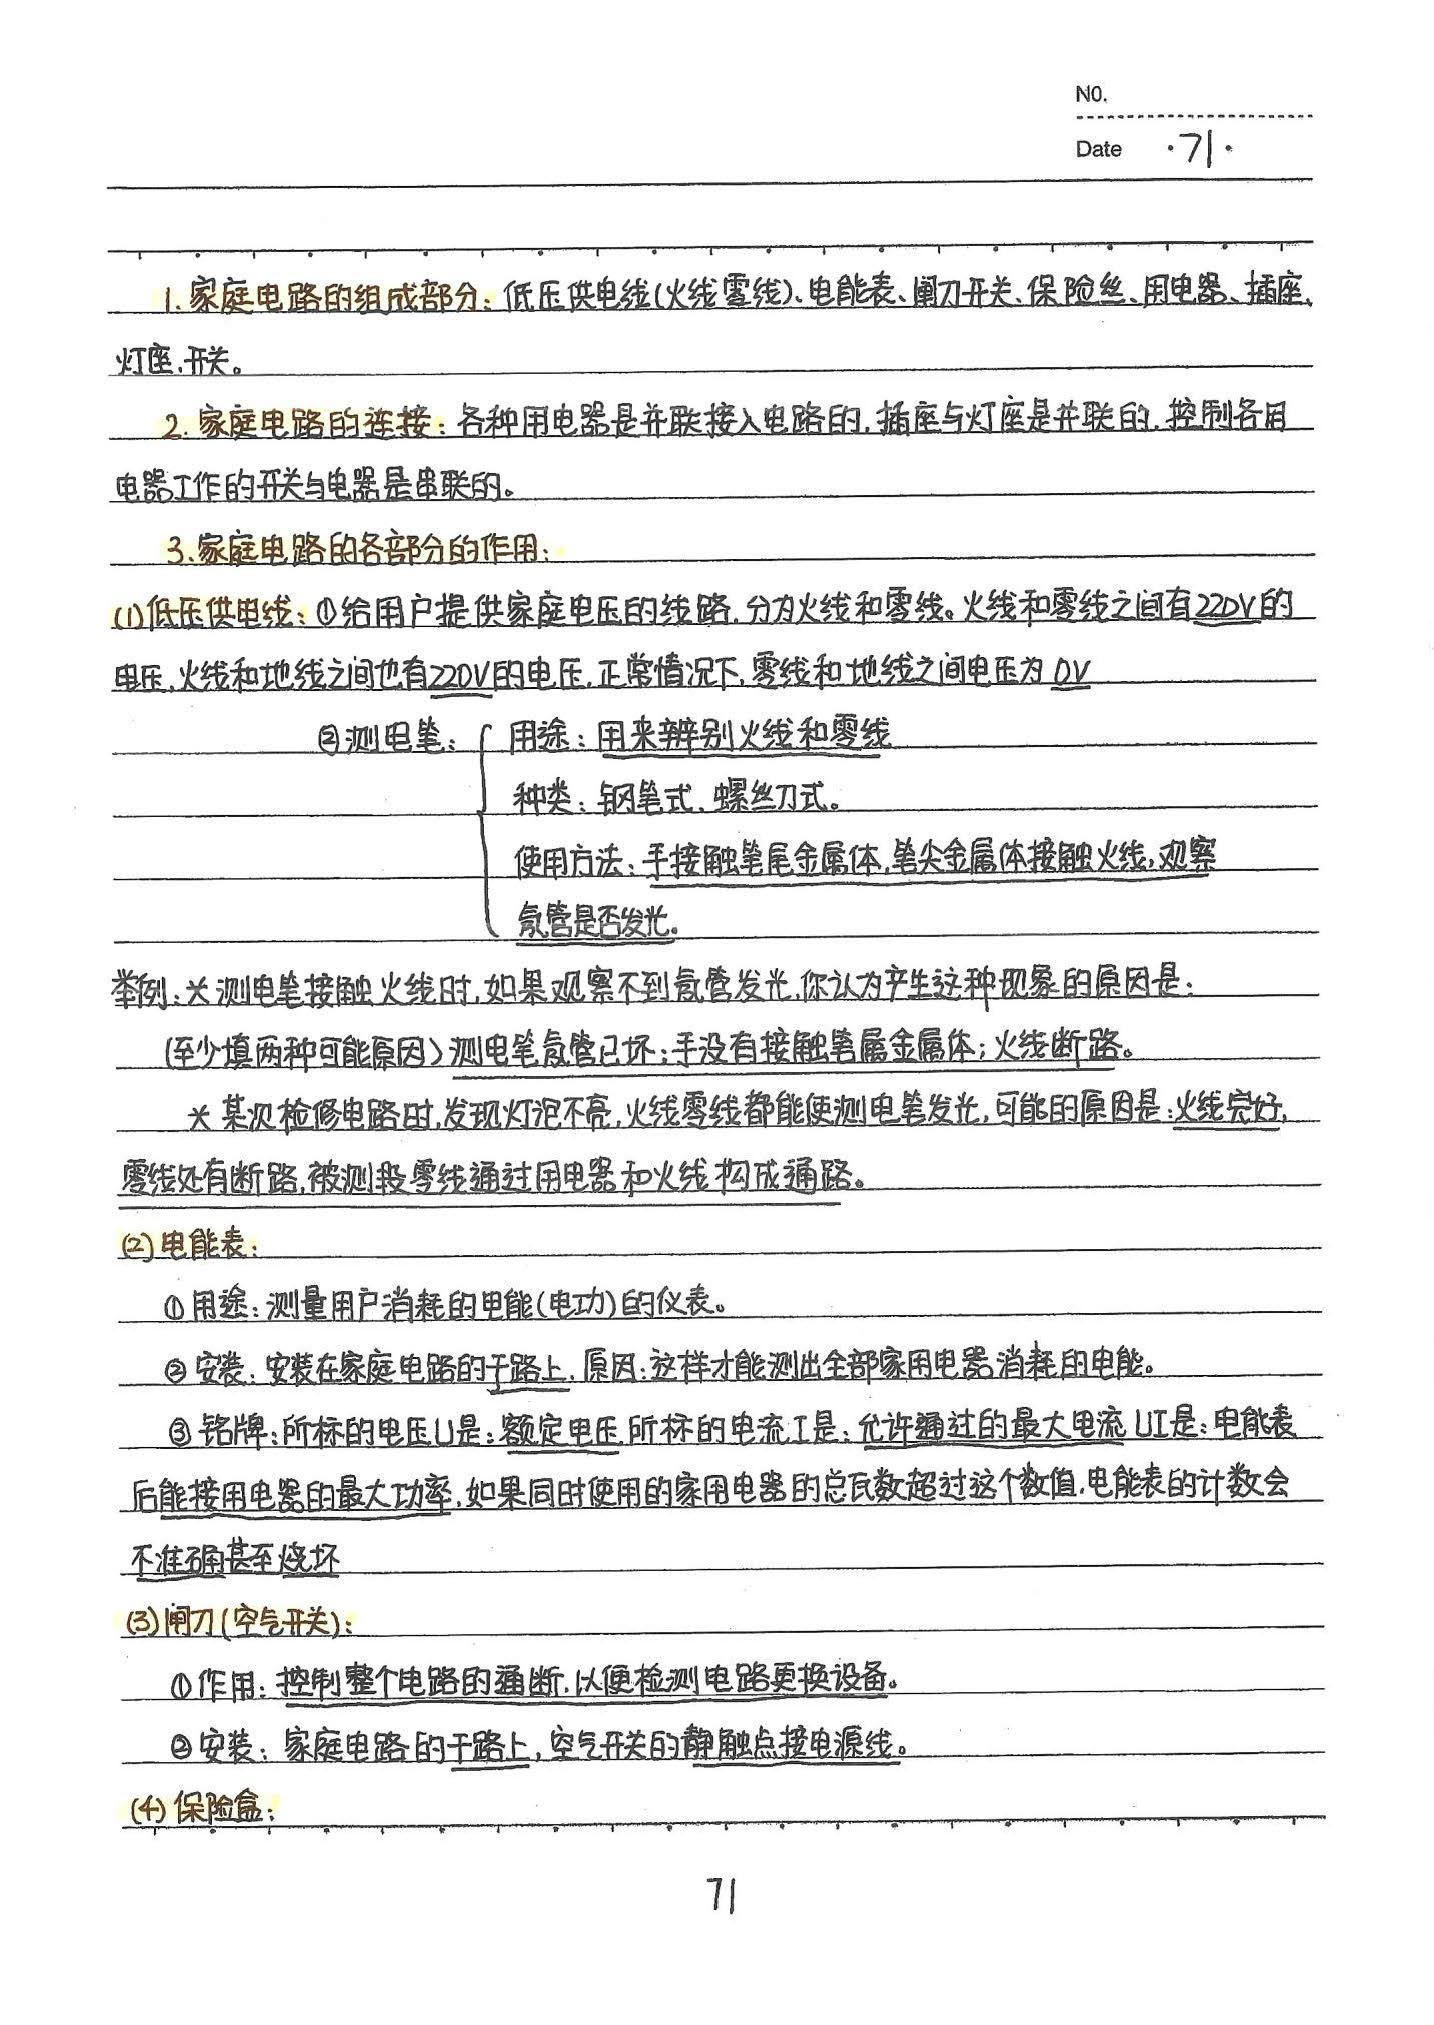 NO.
Date ·71·
1.家庭电路的组成部分：低压供电线(火线零线)、电能表、闸刀开关、保险丝、用电器、插座、
灯座、开关。
2.家庭电路的连接：各种用电器是并联接入电路的,插座与灯座是并联的,控制各用
电器工作的开关与电器是串联的。
3.家庭电路的各部分的作用：
(1)低压供电线：①给用户提供家庭电压的线路,分为火线和零线。火线和零线之间有220V的
电压,火线和地线之间也有220V的电压,正常情况下,零线和地线之间电压为0V
②测电笔： 用途：用来辨别火线和零线
种类：钢笔式、螺丝刀式。
使用方法：手接触笔尾金属体,笔尖金属体接触火线,观察
氖管是否发光。
举例：*测电笔接触火线时,如果观察不到氖管发光,你认为产生这种现象的原因是：
(至少填两种可能原因)测电笔氖管已坏；手没有接触笔属金属体；火线断路。
*某次检修电路时,发现灯泡不亮,火线零线都能使测电笔发光,可能的原因是：火线完好,
零线处有断路,被测段零线通过用电器和火线构成通路。
(2)电能表：
①用途：测量用户消耗的电能(电功)的仪表。
②安装：安装在家庭电路的干路上,原因：这样才能测出全部家用电器消耗的电能。
③铭牌：所标的电压U是：额定电压 所标的电流I是：允许通过的最大电流 UI是：电能表
后能接用电器的最大功率,如果同时使用的家用电器的总瓦数超过这个数值,电能表的计数会
不准确甚至烧坏
(3)闸刀(空气开关)：
①作用：控制整个电路的通断,以便检测电路更换设备。
②安装：家庭电路的干路上,空气开关的静触点接电源线。
(4)保险盒：
71